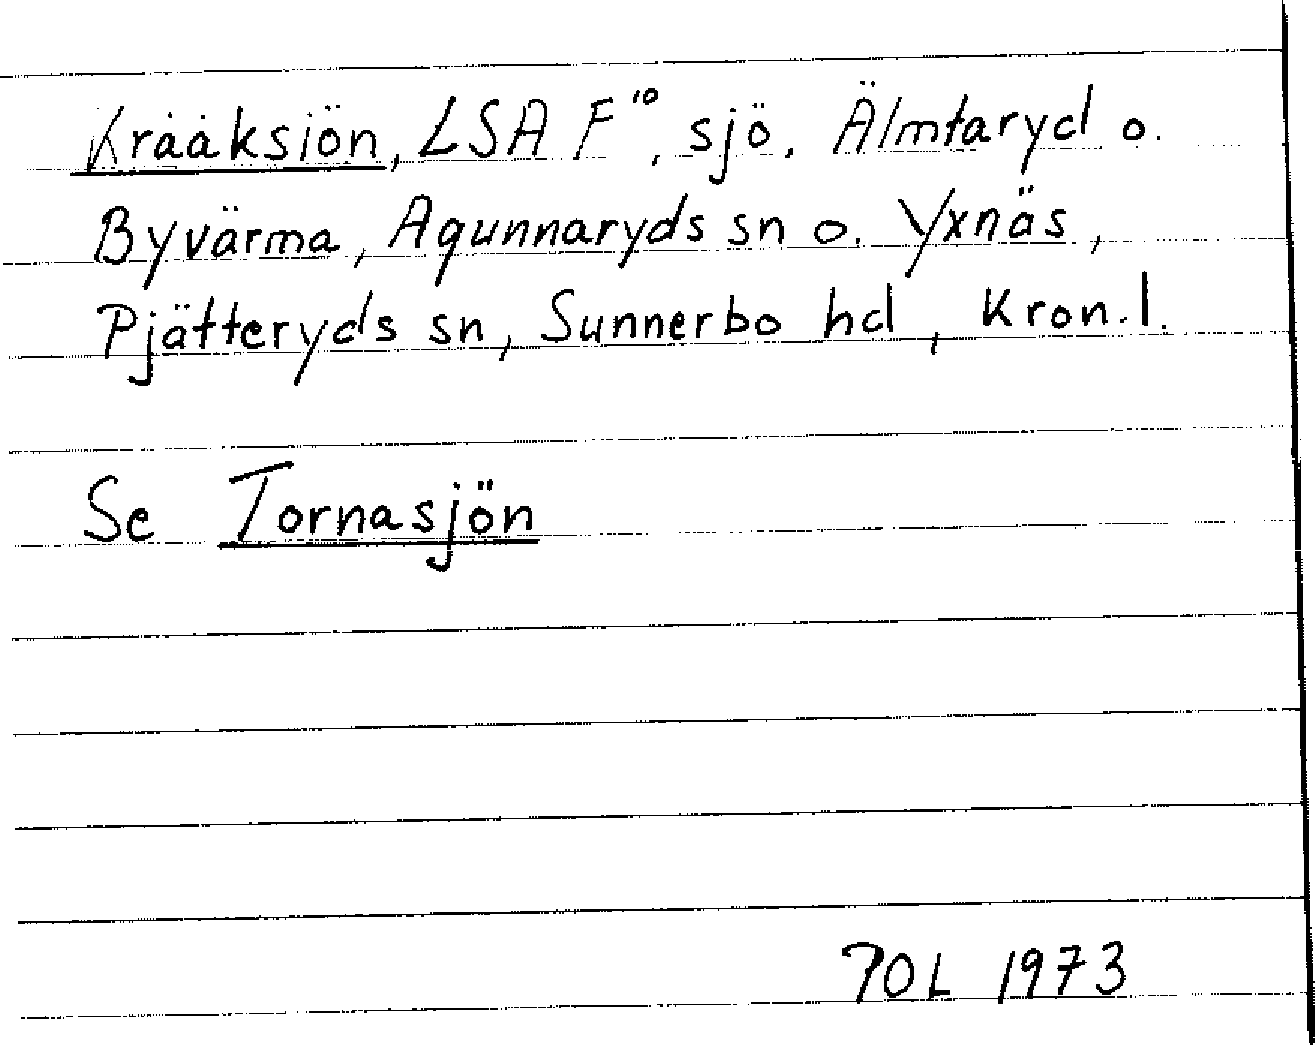 Krååksiön, LSA F¹⁰, sjö, Älmtaryd o.
Byvärma, Agunnaryds sn o. Yxnäs,
Pjätteryds sn, Sunnerbo hd, Kron.l.
Se Tornasjön
POL 1973